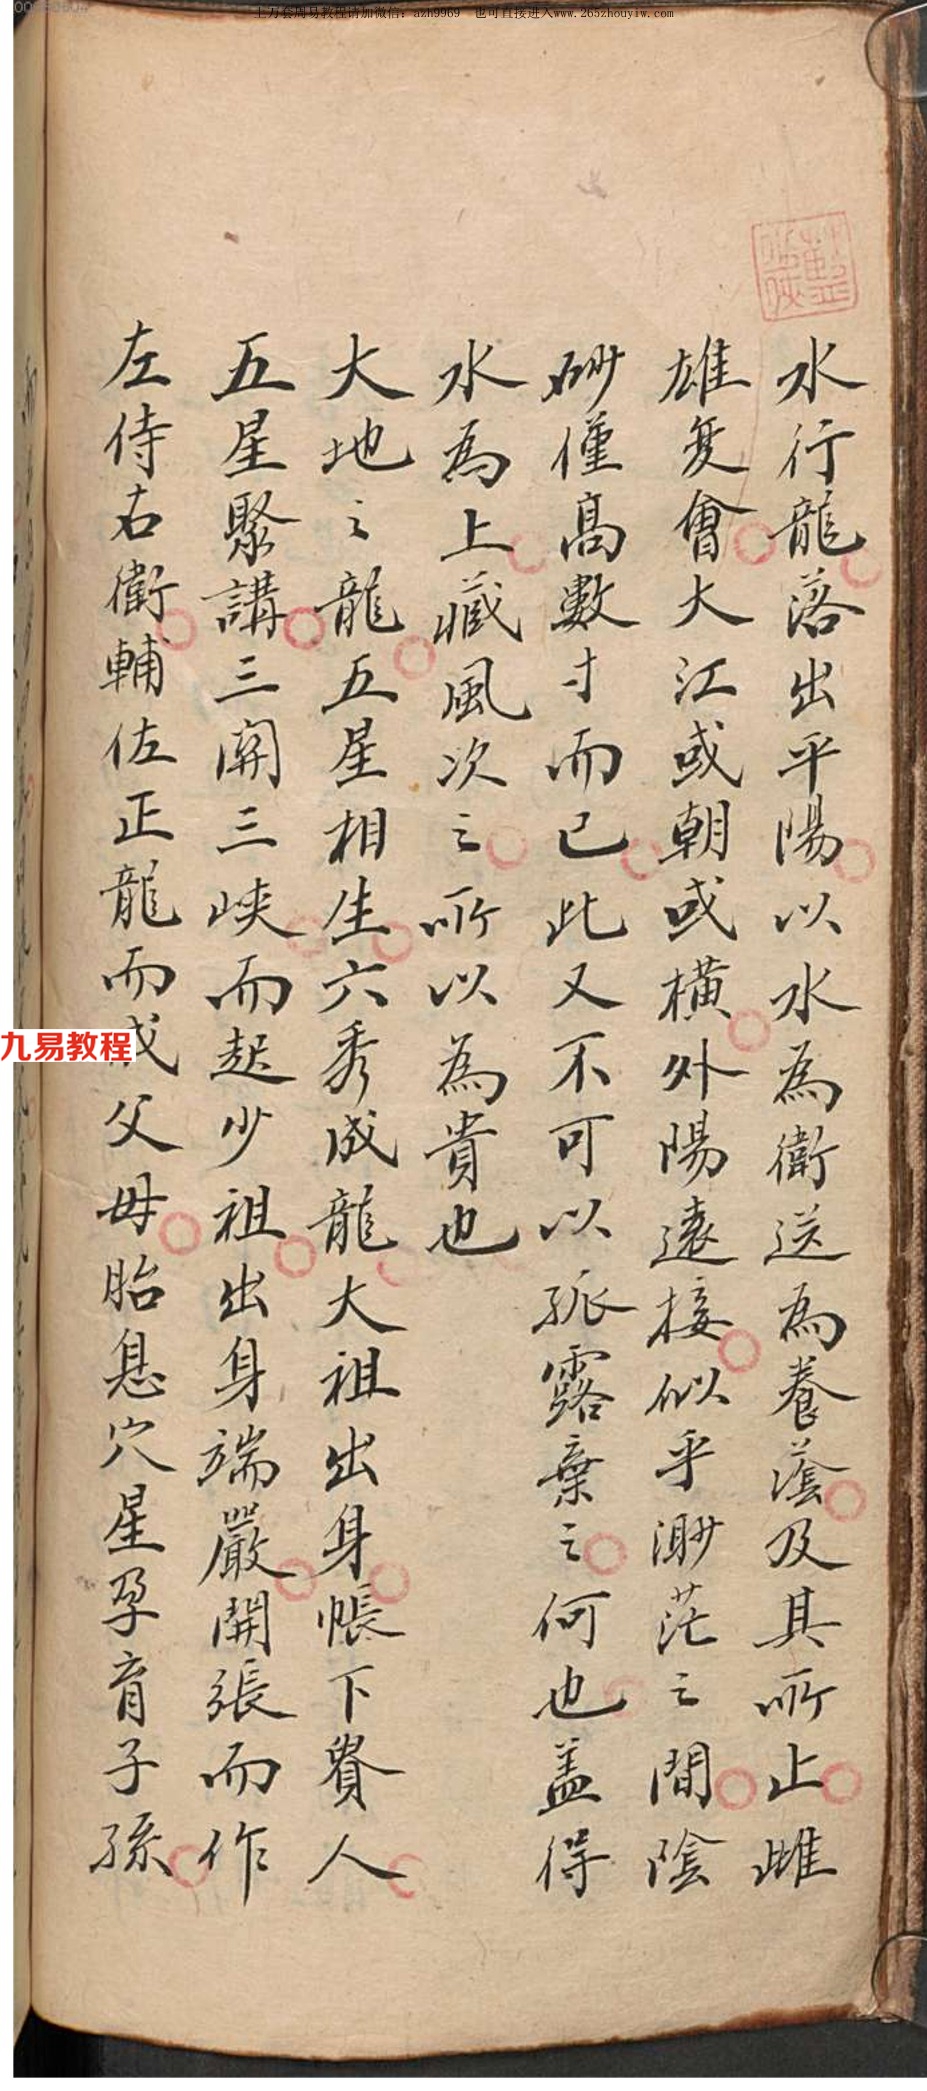 上万套周易教程请加微信：azh9969 也可直接进入www.265zhouyiw.com
水行龍落出平陽以水為衛送為養蔭及其所止雌
雄复會大江或朝或橫外陽遠接似乎渺茫之間陰
砂僅高數寸而已此又不可以孤露棄之何也盖得
水為上藏風次之所以為貴也
大地之龍五星相生六秀成龍大祖出身帳下貴人
五星聚講三關三峽而起少祖出身端嚴開張而作
左侍右衛輔佐正龍而成父母胎息穴星孕育子孫
九易教程